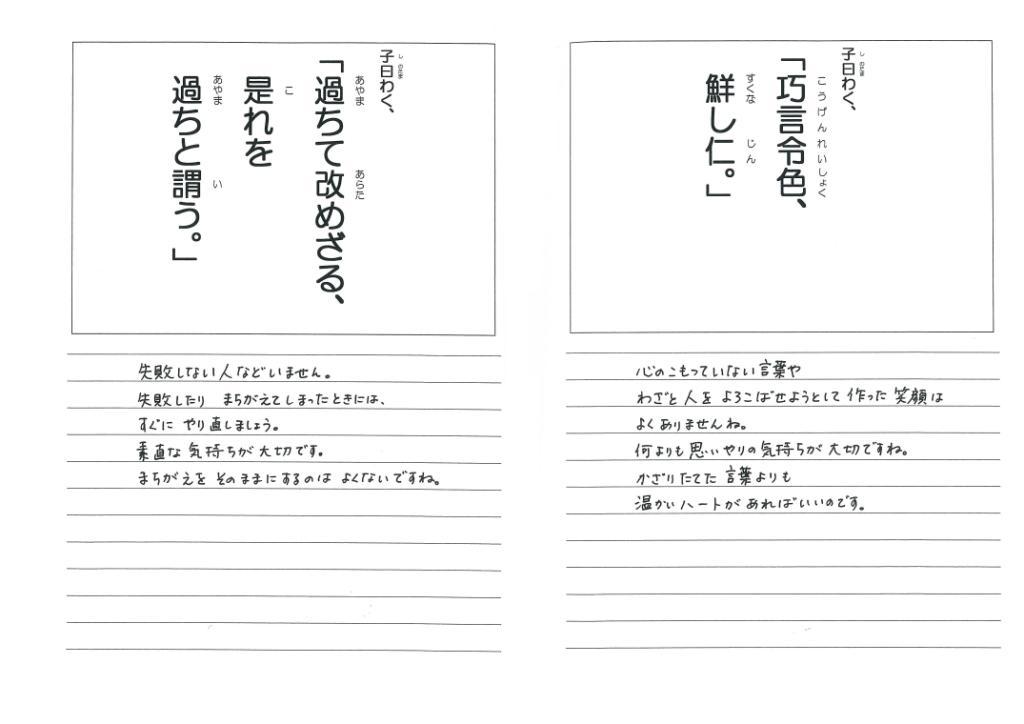 し のたま
子曰わく、
こうげんれいしょく
「巧言令色、
すくな じん
鮮し仁。」
心のこもっていない言葉や
わざと人をよろこばせようとして作った笑顔は
よくありませんね。
何よりも思いやりの気持ちが大切ですね。
かざりたてた言葉よりも
温かいハートがあればいいのです。
し のたま
子曰わく、
あやま あらた
「過ちて改めざる、
こ
是れを
あやま い
過ちと謂う。」
失敗しない人などいません。
失敗したり まちがえてしまったときには、
すぐに やり直しましょう。
素直な気持ちが大切です。
まちがえを そのままにするのは よくないですね。